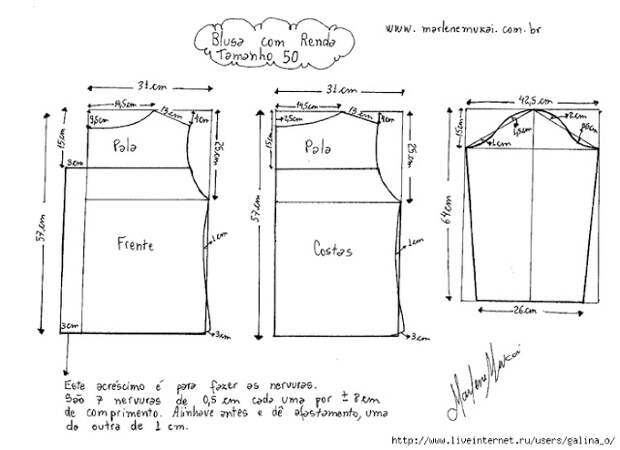 www.marlenemukai.com.br
Blusa com Renda
Tamanho 50
31cm
14,5cm
13 cm
4cm
9,5cm
15cm
Pala
25cm
3cm
57cm
Frente
1cm
3cm
3cm
31cm
14,5cm
13cm
4cm
2,5cm
15cm
Pala
25cm
57cm
Costas
1cm
3cm
42,5cm
15cm
1,5cm
2cm
1cm
64cm
26cm
Este acréscimo é para fazer as nervuras.
São 7 nervuras de 0,5 cm cada uma por ± 8 cm
de comprimento. Alinhave antes e dê afastamento, uma
da outra de 1 cm.
Marlene Mukai
http://www.liveinternet.ru/users/galina_o/